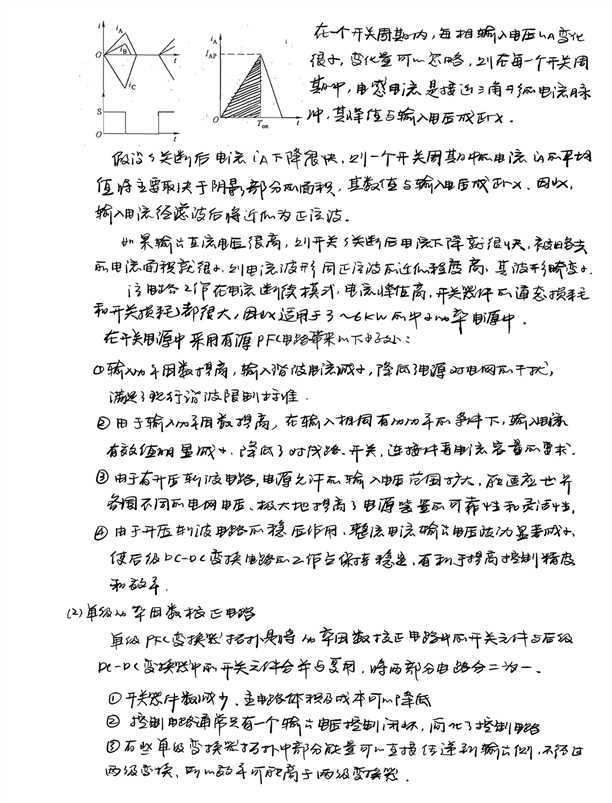 iA
iB
iC
O
t
S
O
t
iA
IAP
O
Ton
t
在一个开关周期内，每相输入电压uA变化
很小，变化量可以忽略，则在每一个开关周
期中，电感电流是接近三角形的电流脉
冲，其峰值与输入电压成正比。
假设S关断后电流iA下降很快，则一个开关周期中的电流iA的平均
值将主要取决于阴影部分的面积，其数值与输入电压成正比。因此，
输入电流经滤波后将近似为正弦波。
如果输出直流电压很高，则开关S关断后电流下降就很快，被略去
的电流面积就很小，则电流波形同正弦波的近似程度高，其波形畸变小。
该电路工作在电流断续模式，电流峰值高，开关器件的通态损耗
和开关损耗都很大，因此适用于3~6kW的中小功率电源中。
在开关电源中采用有源PFC电路带来以下好处：
①输入功率因数提高，输入谐波电流减小，降低了电源对电网的干扰，
满足了现行谐波限制标准。
②由于输入功率因数提高，在输入相同有功功率的条件下，输入电流
有效值明显减小，降低了对线路、开关、连接件等电流容量的要求。
③由于有升压斩波电路，电源允许的输入电压范围扩大，能适应世界
各国不同的电网电压，极大地提高了电源装置的可靠性和灵活性。
④由于升压斩波电路的稳压作用，整流电流输出电压波动显著减小，
使后级DC-DC变换电路的工作点保持稳定，有利于提高控制精度
和效率。
(2)单级功率因数校正电路
单级PFC变换器拓扑是将功率因数校正电路中的开关元件与后级
DC-DC变换器中的开关元件合并与复用，将两部分电路合二为一。
①开关器件数减少，主电路体积及成本可以降低
②控制电路通常只有一个输出电压控制闭环，简化了控制电路
③有些单级变换器拓扑中部分能量可以直接传递到输出侧，不经过
两级变换，所以效率可能高于两级变换器。